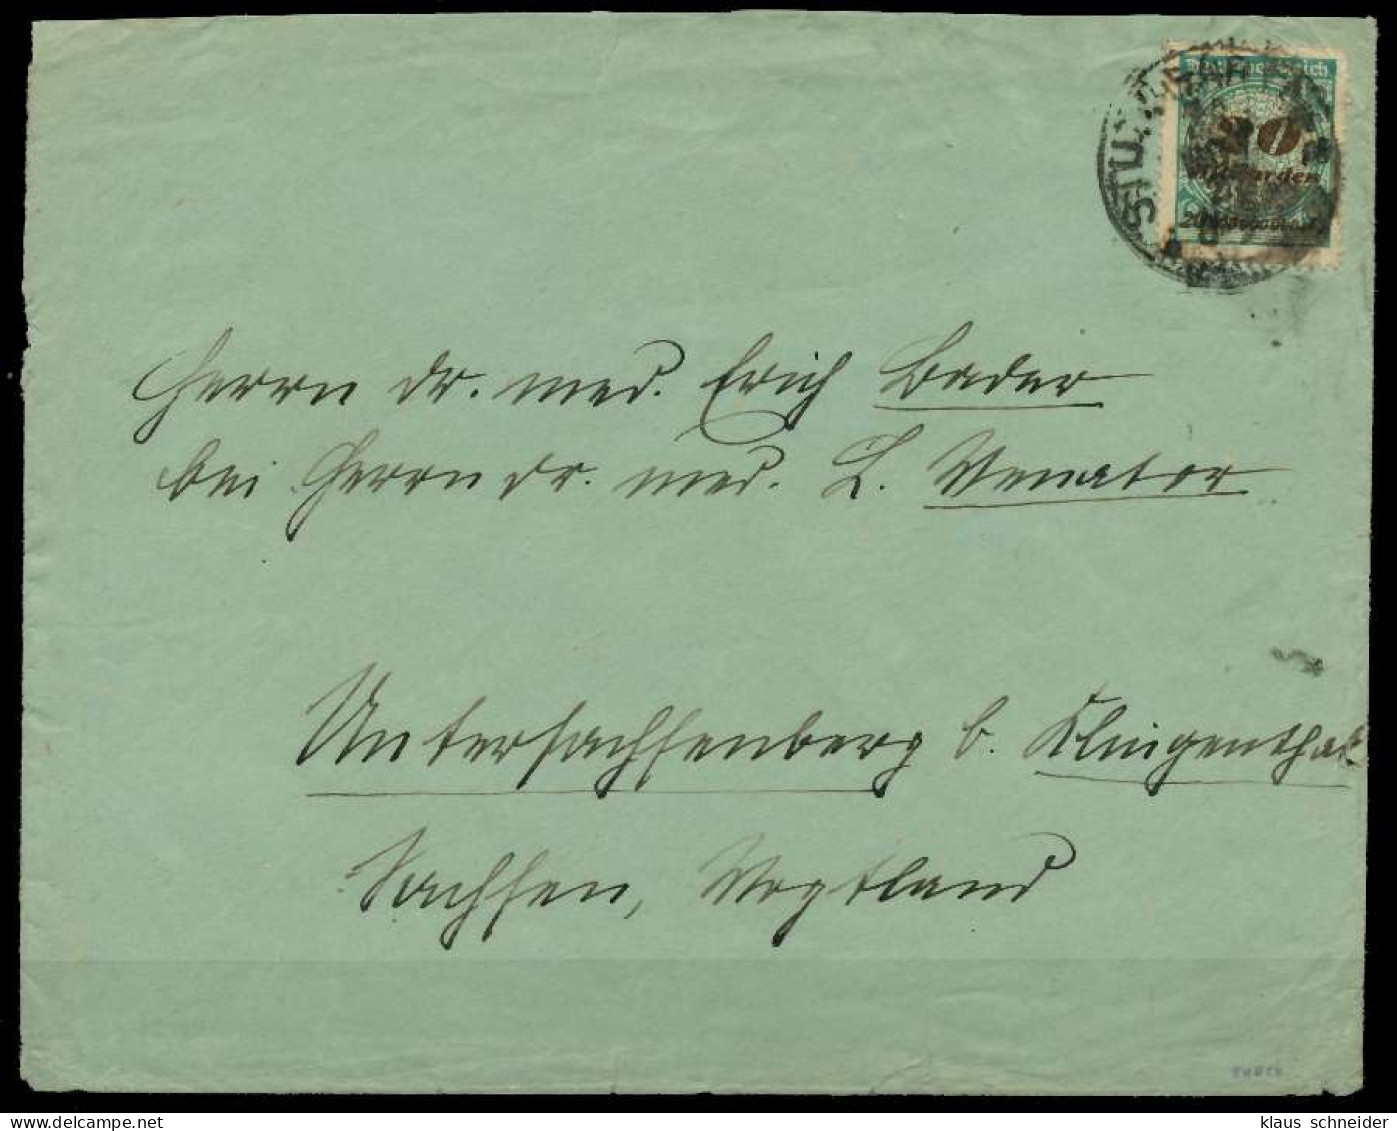 Deutsches Reich
20
Milliarden
STUTTGART
Herrn Dr. med. Erich Bader
bei Herrn Dr. med. L. Venator
Untersachsenberg b. Klingenthal
Sachsen, Vogtland
klaus schneider